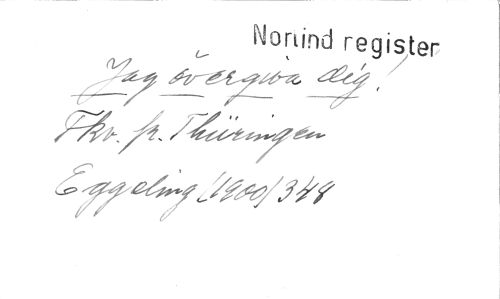 Norlind register
Jag övergiva dig!
Fkv. fr. Thüringen
Eggeling (1900) 348